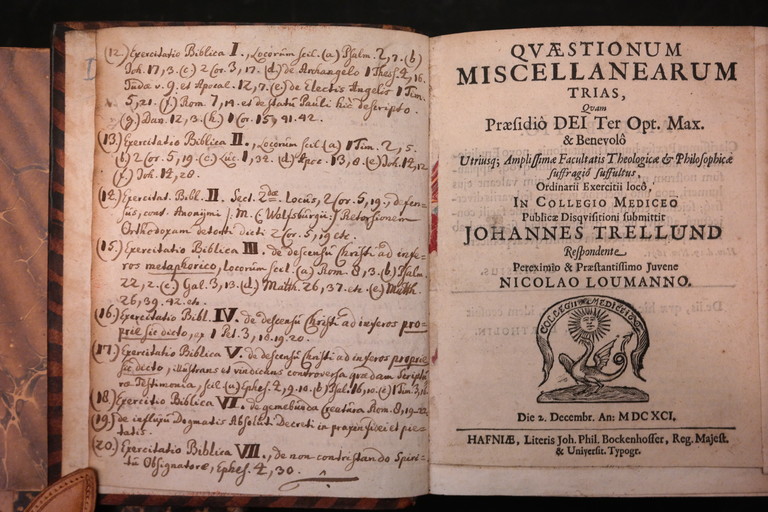 (12.) Exercitatio Biblica I., Locorum scil. (a) Psalm. 2, 7. (b)
Joh. 17, 3. (c) 2 Cor. 3, 17. (d.) de Archangelo 1 Thess. 4, 16.
Judæ v. 9. et Apocal. 12, 7. (e.) de Electis Angelis 1 Tim.
5, 21. (f.) Rom. 7, 14. et de statu Pauli hic descripto.
(g.) Dan. 12, 3. (h.) 1 Cor. 15, 41. 42.
(13.) Exercitatio Biblica II., Locorum scil. (a) 1 Tim. 2, 5.
(b) 2 Cor. 5, 19. (c) Luc. 1, 32. (d.) Apoc. 13, 8. (e.) Joh. 12, 12
(f.) Joh. 12, 28.
(14.) Exercitat. Bibl. II. Sect. 2dæ. Locus, 2 Cor. 5, 19., defen=
sus, cont. Anonymi J. M. (Wolfsburgii) Retorsionem
Orthodoxam detorti dicti 2 Cor. 5, 19 etc.
(15.) Exercitatio Biblica III. de descensu Christi ad infe=
ros metaphorico, Locorum scil. (a) Rom. 8, 3. (b.) Psalm.
22, 2. (c.) Gal. 3, 13. (d.) Matth. 26, 37. etc. (e.) Matth.
26, 39. 42. etc.
(16.) Exercitatio Bibl. IV. de descensu Christi ad inferos pro=
prie sic dicto, ex 1 Pet. 3, 18. 19. 20.
(17.) Exercitatio Biblica V. de descensu Christi ad inferos proprie
sic dicto, illustrans et vindicans controversa quædam Scriptu=
ræ Testimonia, scil. (a) Ephes. 4, 9. 10. (b) Psal. 16, 10. (c) 1 Tim. 3, 16.
(18.) Exercitio Biblica VI. de gemebunda Creatura Rom. 8, 19-22.
(19.) de influxu Dogmatis Absoluti Decreti in praxin fidei et pie=
tatis.
(20.) Exercitatio Biblica VII., de non contristando Spiri=
tu Obsignatore, Ephes. 4, 30.
QVÆSTIONUM
MISCELLANEARUM
TRIAS,
Quam
Præsidiô DEI Ter Opt. Max.
& Benevolô
Utriusq; Amplissimæ Facultatis Theologicæ & Philosophicæ
suffragiô suffultus,
Ordinarii Exercitii locô,
IN COLLEGIO MEDICEO
Publicæ Disqvisitioni submittit
JOHANNES TRELLUND
Respondente
Pereximio & Præstantissimo Juvene
NICOLAO LOUMANNO.
COLLEGII MEDICEI
Die 2. Decembr. An: MDCXCI.
HAFNIÆ, Literis Joh. Phil. Bockenhoffer, Reg. Majest.
& Universit. Typogr.